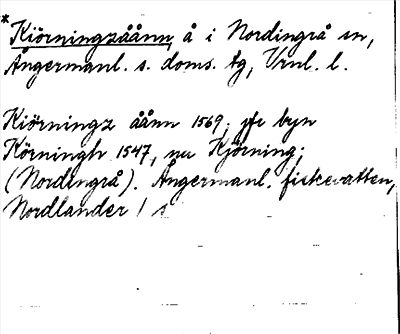 *Kiörningzåånn, å i Nordingrå sn,
Ångermanl. s. doms. tg, Vrnl. l.
Kiörningz åånn 1569; jfr byn
Körningh 1547, nu Kjörning;
(Nordingrå). Ångermanl. fiskevatten,
Nordlander 1 s